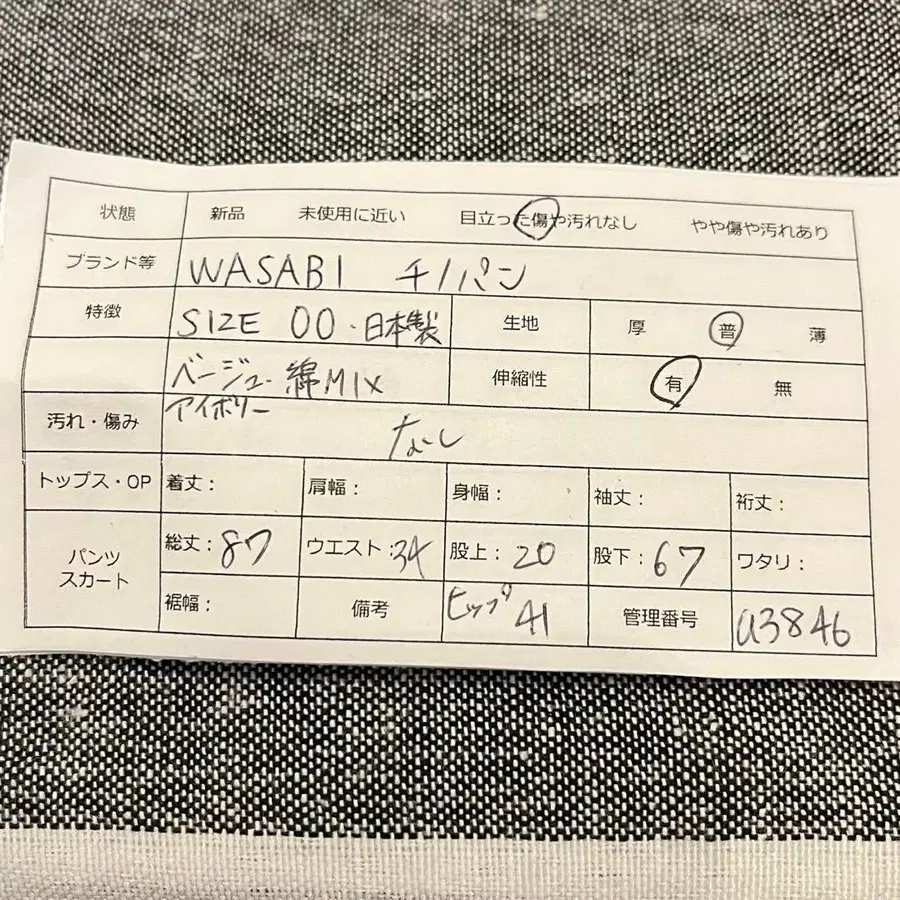 状態 新品 未使用に近い 目立った傷や汚れなし やや傷や汚れあり
ブランド等 WASABI チノパン
特徴 SIZE 00・日本製 生地 厚 普 薄
ベージュ・綿MIX 伸縮性 有 無
アイボリー
汚れ・傷み なし
トップス・OP 着丈: 肩幅: 身幅: 袖丈: 裄丈:
パンツ スカート 総丈:87 ウエスト:34 股上:20 股下:67 ワタリ:
裾幅: 備考 ヒップ41 管理番号 U3846